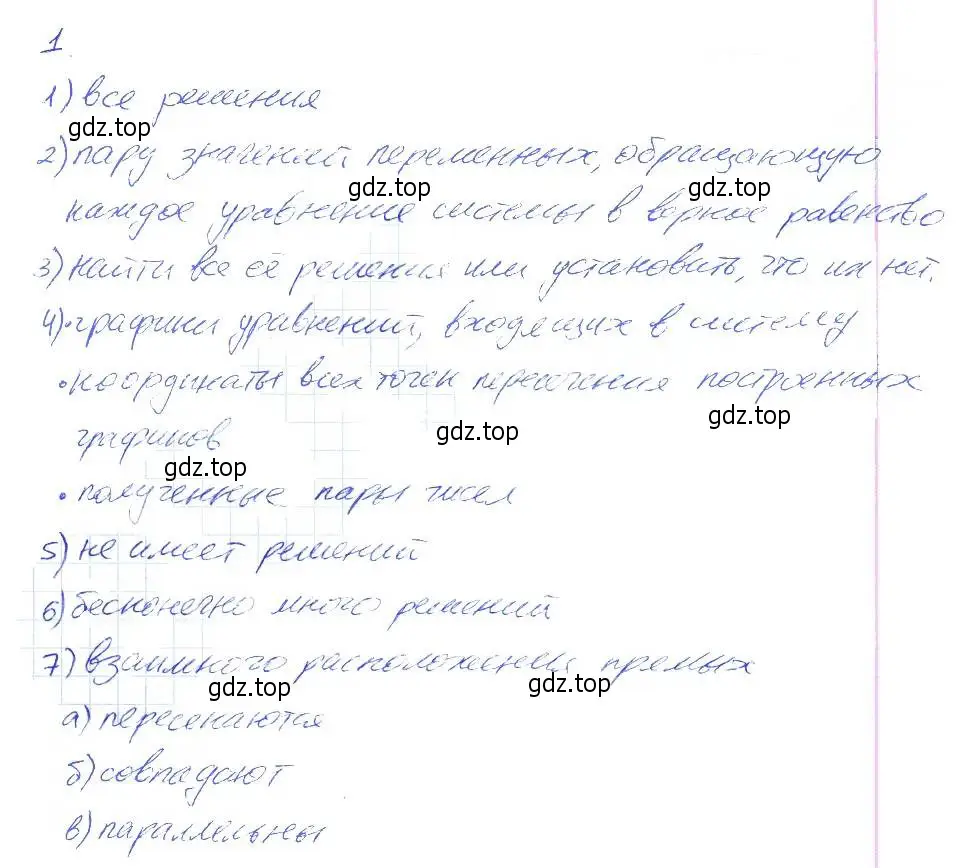 1
1) все решения
gdz.top
2) пару значений переменных, обращающую
gdz.top gdz.top
каждое уравнение системы в верное равенство
3) найти все её решения или установить, что их нет.
4) • графики уравнений, входящих в систему
• координаты всех точек пересечения построенных
gdz.top gdz.top
графиков
gdz.top
• полученные пары чисел
5) не имеет решений
6) бесконечно много решений
7) взаимного расположения прямых
gdz.top gdz.top
а) пересекаются
б) совпадают
в) параллельны